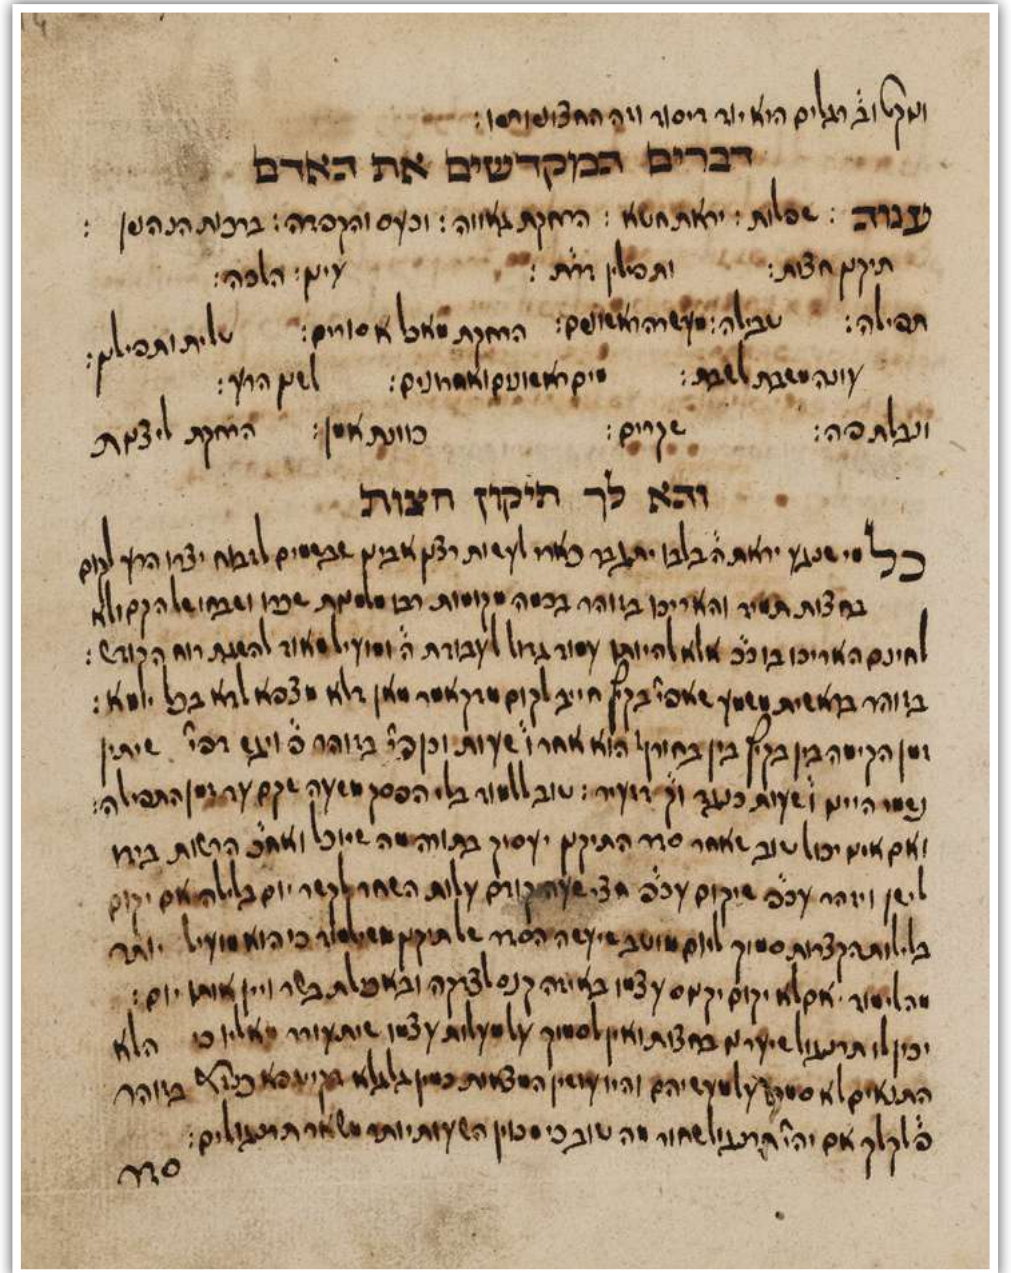 דברים המקדשים את האדם
ענוה : שפלות : יראת חטא : הרחקת גאווה : וכעס והקפדה : ברכות הנהנין :
תיקון חצות : ותפילין עיון הלכה :
תפילה : טבילה : הרחקת מאכל אסורים : טלית ותפילין :
עונה משבת לשבת : מים ראשונים ואחרונים : לשון הרע :
ונבלת פה : שקרים : כוונת אמן : הרחקת ליצנות
והא לך תיקון חצות
כל מי שנגע יראת ה' בלבו יתגבר כארי לעשות רצון אביו שבשמים לזבוח יצרו הרע לקום
בחצות תמיד והאריכו בזוהר בכמה מקומות רבו מלמנות שכרו ושבחו של הקם ולא
לחינם האריכו בו כ"כ אלא להיותו עמוד גדול לעבודת ה' ומועיל מאוד להשגת רוח הקודש :
בזוהר בראשית משמע שאפי' בקיץ חייב לקום מדקאמר מאן דלא
זמן הקימה בין בקיץ בין בחורף הוא אחר ו' שעות וכן פי' בזוהר פ' ויגש דפי' שיתין
נשמי היינו ו' שעות : טוב ללמוד בלי הפסק משעה שקם עד זמן התפילה :
ואם אינו יכול טוב שאחר סדר התיקון יעסוק בתורה מה שיוכל ואח"כ הרשות בידו
לישן ויזהר עכ"פ שיקום עכ"פ חצי שעה קודם עלות השחר לקשר יום בלילה אם יקום
בלילות הקצרות סמוך ליום מוטב שיעשה הסדר של תיקון משילמוד כי הוא מועיל יותר
מהלימוד אם לא יקום יקנוס עצמו באיזה קנס לצדקה ובאכילת בשר ויין אותו יום :
יכין לו תרנגול שיעירנו בחצות ואין לסמוך על מעלות עצמו שיתעורר מאליו כי הלא
התנאים לא סמכו על מעשיהם והיו עושין המצאות כמין גלגלא בזוהר
פ' לך לך אם יהי' תרנגול שחור מה טוב כי מכוין השעות יותר משאר תרנגולים :
סדר